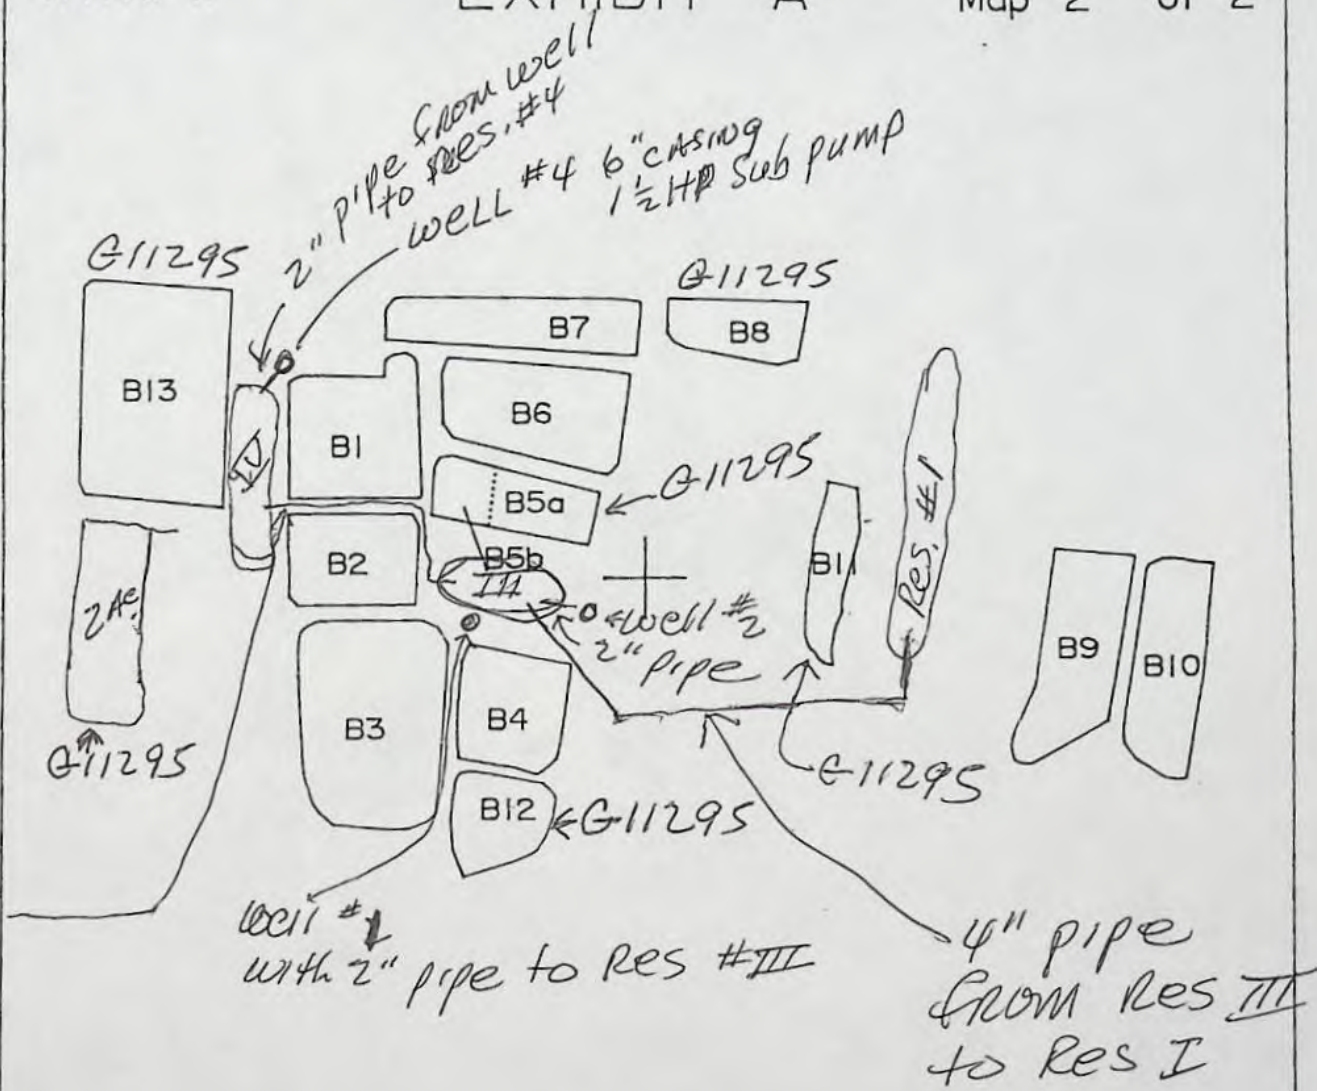 EXHIBIT "A" Map 2 of 2
2" pipe from well
to Res. #4
well #4 6" casing
1 1/2 HP Sub pump
G11295
G11295
B7
B8
B13
B6
B1
IV
G11295
B5a
Res. #1
B5b
III
B2
B11
2 Ac.
well #2
2" pipe
B9
B10
B3
B4
G11295
G11295
B12
G11295
well #1
with 2" pipe to Res #III
4" pipe
from Res III
to Res I